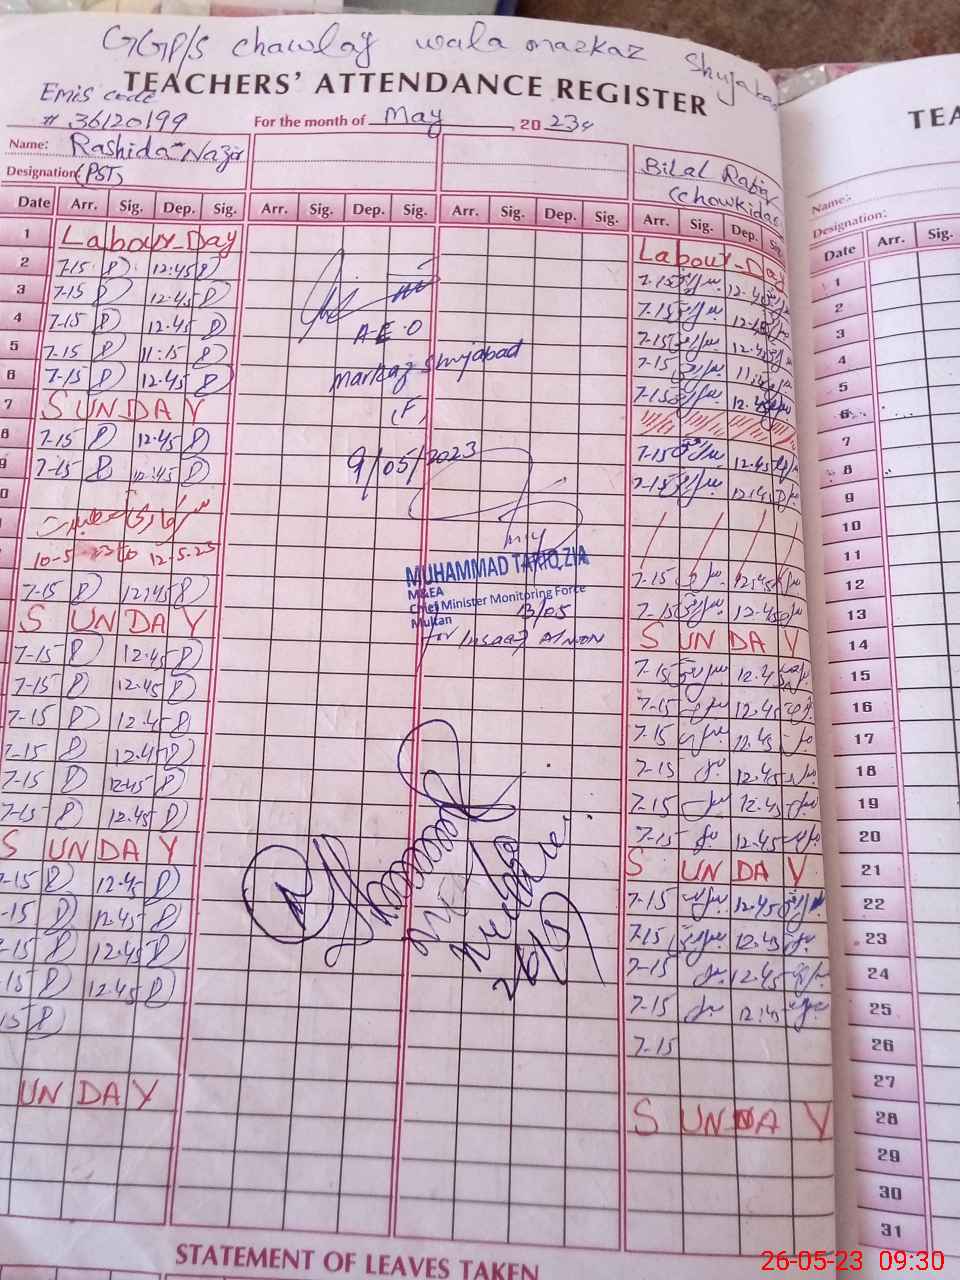 GGP/S chawlay wala mazkaz Shujabad
TEACHERS' ATTENDANCE REGISTER
Emis code
# 36120199
For the month of May, 2023
Name: Rashida Nazir
Designation (PST)
Bilal Rafiq
(chowkidar
Date Arr. Sig. Dep. Sig. Arr. Sig. Dep. Sig. Arr. Sig. Dep. Sig. Arr. Sig. Dep. Sig.
1 Labour-Day Labour-Day
2 7-15 12:45 7-15 12-45
3 7-15 12-45 7-15 12-45
4 7-15 12-45 7-15 12-45
5 7-15 11:15 7-15
6 7-15 12-45 7-15 12-45
7 SUNDAY
8 7-15 12-45 7-15 12-45
9 7-15 12:45 7-15 12-45
10-5-23 to 12-5-23
7-15 12:45 7-15 12:45
7-15 12-45
SUNDAY SUNDAY
7-15 12-45 7-15 12-45
7-15 12-45 7-15 12-45
7-15 12-45 7-15 12-45
7-15 12-45 7-15 12-45
7-15 12-45 7-15 12-45
7-15 12-45 7-15 12-45
SUNDAY SUNDAY
7-15 12-45 7-15 12-45
7-15 12-45 7-15 12-45
7-15 12-45 7-15 12-45
7-15 12-45 7-15 12:45
15 7-15
UNDAY SUNDAY
A-E-O
markaz Shujabad
(F)
9/05/2023
MUHAMMAD TARIQ ZIA
M&EA
Chief Minister Monitoring Force
Multan
13/05
26/5
STATEMENT OF LEAVES TAKEN
TEA
Name:
Designation:
Date Arr. Sig.
1
2
3
4
5
6
7
8
9
10
11
12
13
14
15
16
17
18
19
20
21
22
23
24
25
26
27
28
29
30
31
26-05-23 09:30